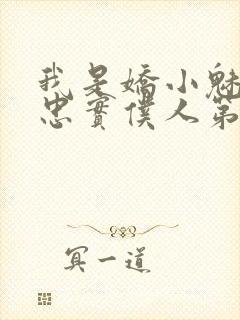 我是嬌小魅
忠實僕人第
冥一道